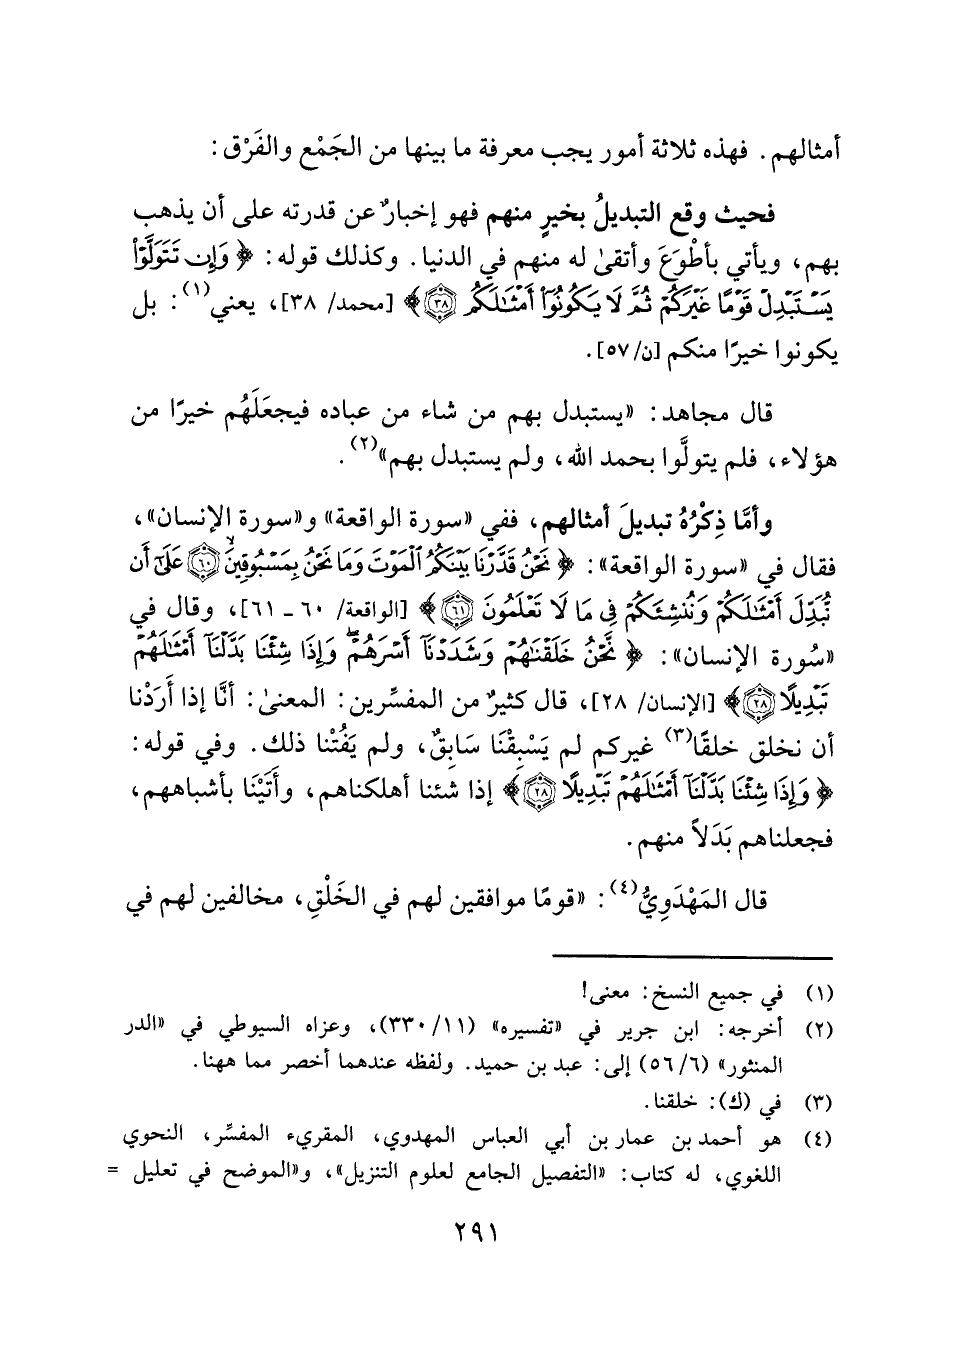 أمثالهم. فهذه ثلاثة أمور يجب معرفة ما بينها من الجَمْع والفَرْق:
فحيث وقع التبديلُ بخيرٍ منهم فهو إخبارٌ عن قدرته على أن يذهب
بهم، ويأتي بأطْوَعَ وأتقىٰ له منهم في الدنيا. وكذلك قوله: ﴿وَإِن تَتَوَلَّوْا۟
يَسْتَبْدِلْ قَوْمًا غَيْرَكُمْ ثُمَّ لَا يَكُونُوٓا۟ أَمْثَـٰلَكُم ۝٣٨﴾ [محمد/ ٣٨]، يعني(١): بل
يكونوا خيرًا منكم [ن/٥٧].
قال مجاهد: «يستبدل بهم من شاء من عباده فيجعَلَهُم خيرًا من
هؤلاء، فلم يتولَّوا بحمد الله، ولم يستبدل بهم»(٢).
وأمَّا ذِكْرُهُ تبديلَ أمثالهم، ففي «سورة الواقعة» و«سورة الإنسان»،
فقال في «سورة الواقعة»: ﴿نَحْنُ قَدَّرْنَا بَيْنَكُمُ الْمَوْتَ وَمَا نَحْنُ بِمَسْبُوقِينَ ۝٦٠ عَلَىٰٓ أَن
نُّبَدِّلَ أَمْثَـٰلَكُمْ وَنُنشِئَكُمْ فِى مَا لَا تَعْلَمُونَ ۝٦١﴾ [الواقعة/ ٦٠ ـ ٦١]، وقال في
«سُورة الإنسان»: ﴿نَّحْنُ خَلَقْنَـٰهُمْ وَشَدَدْنَآ أَسْرَهُمْ ۖ وَإِذَا شِئْنَا بَدَّلْنَآ أَمْثَـٰلَهُمْ
تَبْدِيلًا ۝٢٨﴾ [الإنسان/ ٢٨]، قال كثيرٌ من المفسِّرين: المعنىٰ: أنَّا إذا أَرَدْنا
أن نخلق خلقًا(٣) غيركم لم يَسْبِقْنَا سَابِقٌ، ولم يَفُتْنا ذلك. وفي قوله:
﴿وَإِذَا شِئْنَا بَدَّلْنَآ أَمْثَـٰلَهُمْ تَبْدِيلًا ۝٢٨﴾ إذا شئنا أهلكناهم، وأتَيْنا بأشباههم،
فجعلناهم بَدَلاً منهم.
قال المَهْدَوِيُّ(٤): «قومًا موافقين لهم في الخَلْقِ، مخالفين لهم في
(١) في جميع النسخ: معنى!
(٢) أخرجه: ابن جرير في «تفسيره» (١١/ ٣٣٠)، وعزاه السيوطي في «الدر
المنثور» (٦/ ٥٦) إلى: عبد بن حميد. ولفظه عندهما أخصر مما ههنا.
(٣) في (ك): خلقنا.
(٤) هو أحمد بن عمار بن أبي العباس المهدوي، المقريء المفسِّر، النحوي
اللغوي، له كتاب: «التفصيل الجامع لعلوم التنزيل»، و«الموضح في تعليل =
٢٩١